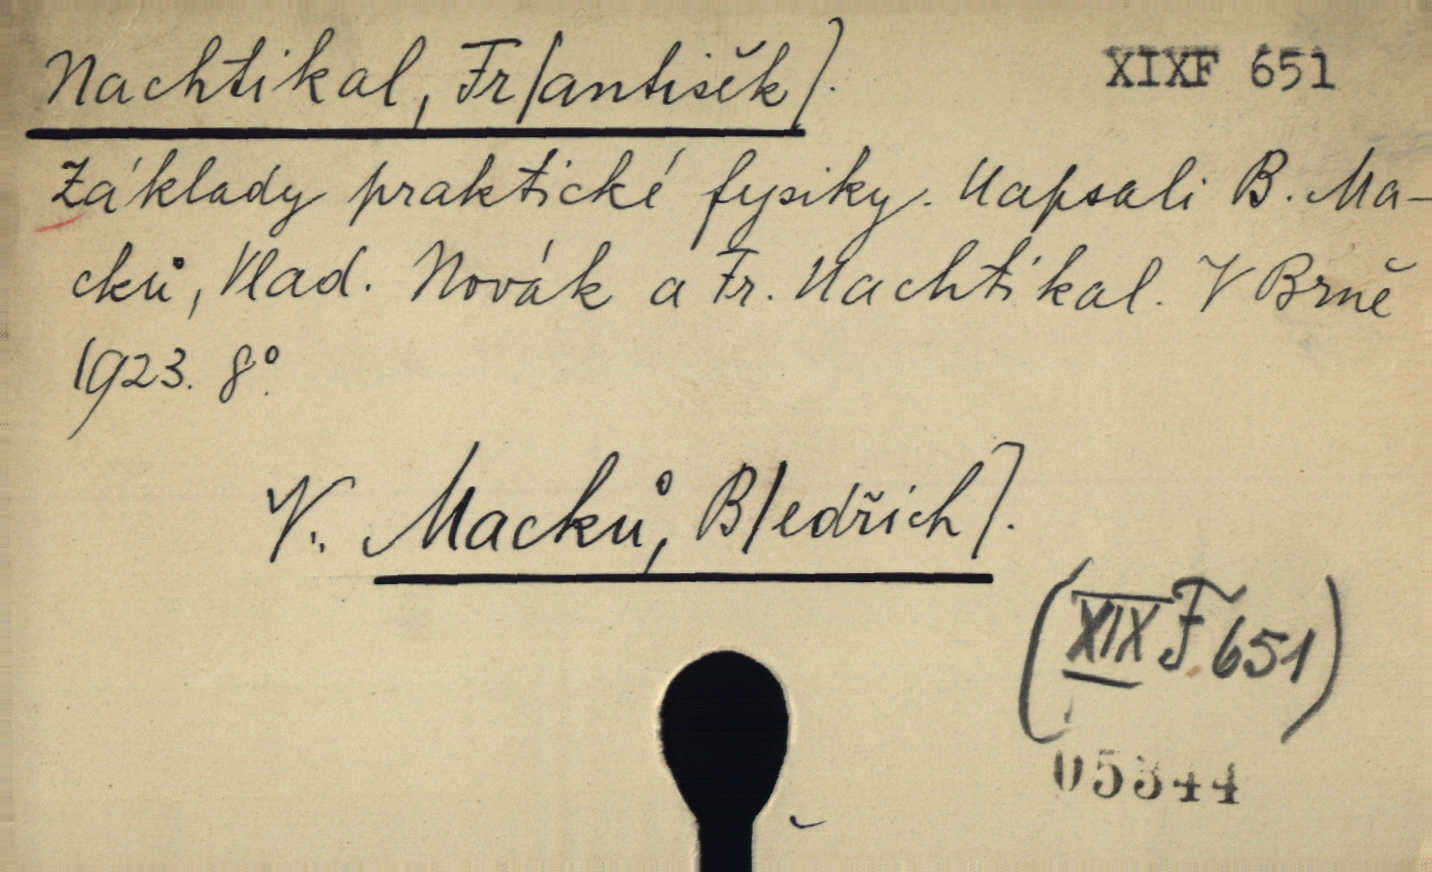 Nachtikal, Fr/antišek/.
XIXF 651
Základy praktické fysiky. Napsali B. Ma-
ců, Vlad. Novák a Fr. Nachtikal. V Brně
1923. 8°.
V. Macků, B/edřich/.
(XIX F. 651)
05344